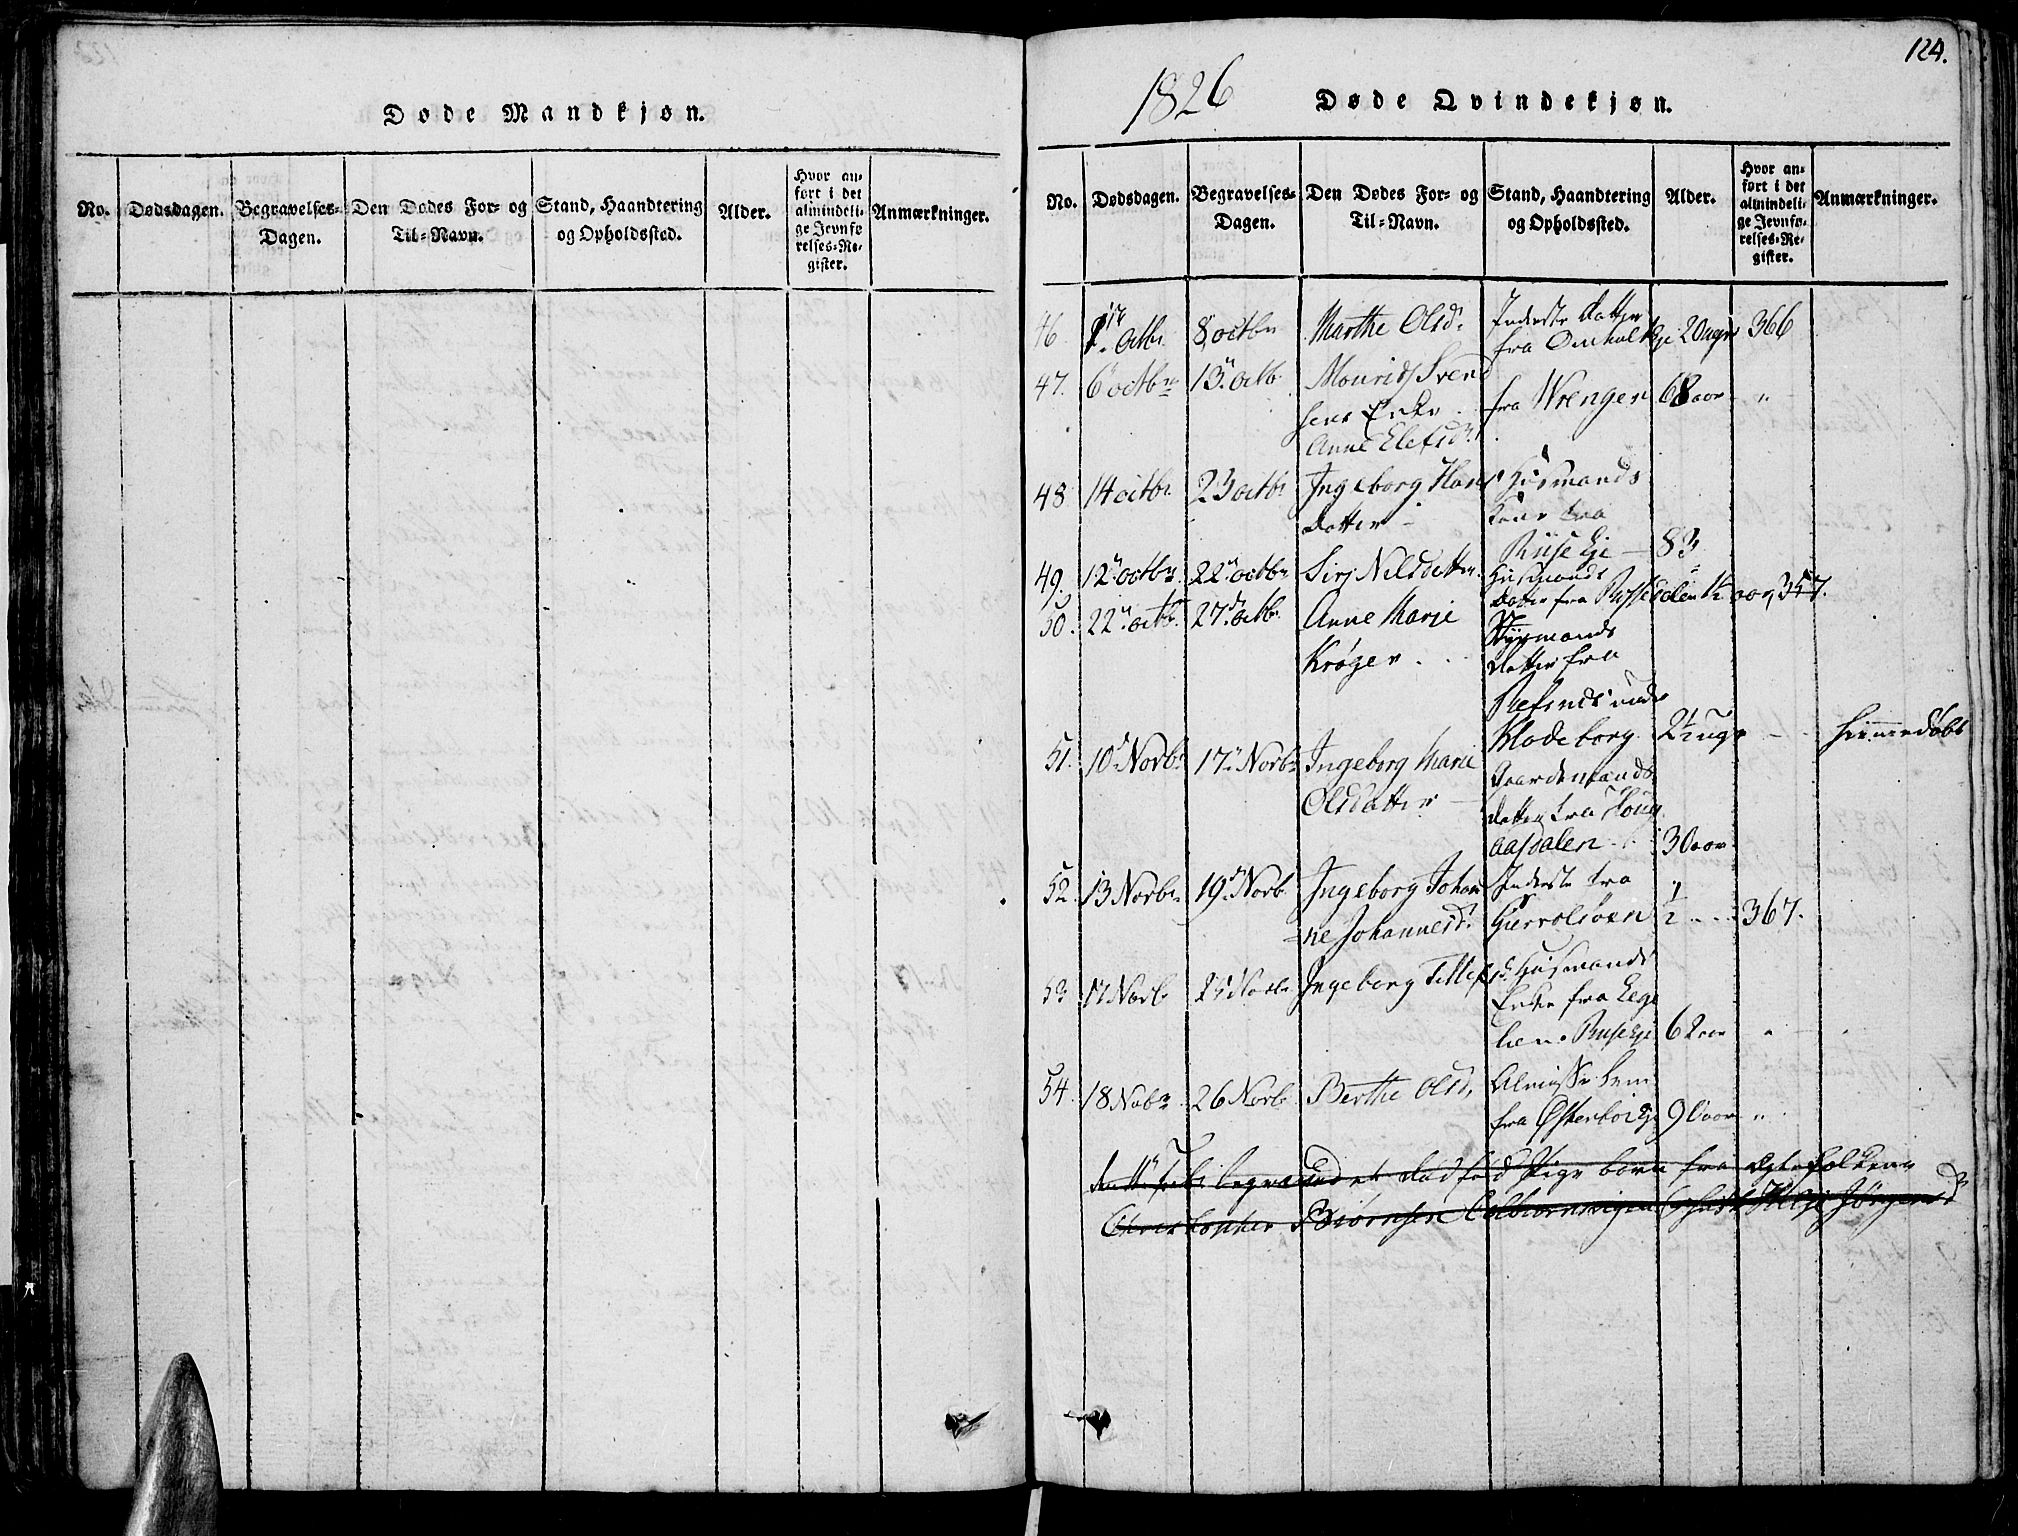 Døde Mandkjøn.
No.
Dødsdagen.
Begravelses-
Dagen.
Den Dødes For- og
Til-Navn.
Stand, Haandtering
og Opholdssted.
Alder.
Hvor an-
ført i det
almindeli-
ge Jevnfø
relses-Re-
gister.
Anmærkninger.
124.
1826 Døde Qvindekjøn.
No.
Dødsdagen.
Begravelses-
Dagen.
Den Dødes For- og
Til-Navn.
Stand, Haandtering
og Opholdssted.
Alder.
Hvor an-
ført i det
almindeli-
ge Jevnfø-
relses-Re-
gister.
Anmærkninger.
46 1 Octbr 8 octbr Marthe Olsd. Inderste Datter
fra Omholt Eje 20 uger 366
47. 6 octbr 15 octb Mourids Svend
sens Enke fra Wrengen 68 aar "
Anne Elefsd.
48 14 octbr 23 octbr Ingeborg Hans
datter
Husmands
kone fra
Riise Eje 83
49. 12 octbr 22 octbr Siri Nilsdatter Husmands
datter fra Aar 357.
50. 22 octbr 27 octbr Anne Marie
Krøger
Styrmands
datter fra
Refsnes ved
Klodeborg 2½ uger hjemmedøbt
51. 10 Novbr 17 Novbr Ingeborg Marie
Olsdatter
Gaardmands
datter fra
aasdalen 30 aar
52. 13 Novbr 19 Novb Ingeborg Johan
ne Johannesd.
Inderste fra
½ 367.
53 17 Novb Ingeborg Tellefsd. Husmands
Enke fra Ege
lien Riise Eje 62 aar "
54. 18 Nobr 26 Novb Berthe Olsd, Almisse Lem
fra Østerhoi Eje 90 aar "
begravet et dødfød Pige barn fra Ægtefolkene
Christopher Biørnsen Colbiørnsvigen Jørgensd